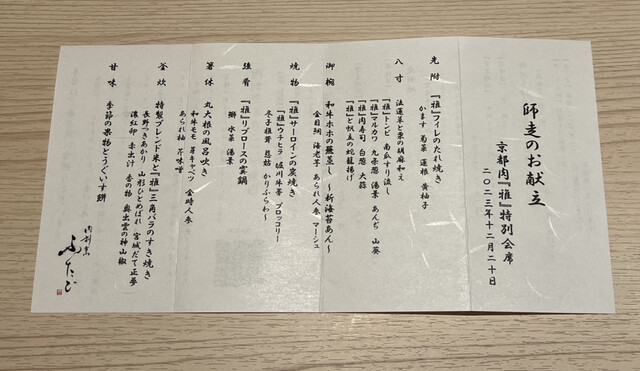 師走のお献立
京都肉『雅』特別会席
二〇二三年十二月二十日
先附 『雅』フィレのたれ焼き
かます 菊菜 蓮根 黄柚子
八寸 法蓮草と栗の胡麻和え
『雅』トンビ 南瓜すり流し
『雅』マルカワ 九条葱 湯葉 あんぢ 山葵
『雅』肉寿司 白葱 大蒜
『雅』と帆立の蛇籠揚げ
御椀 和牛ホホの蕪蒸し 〜新海苔あん〜
金目鯛 海老芋 あられ人参 マーシュ
焼物 『雅』サーロインの炭焼き
『雅』ウチヒラ 堀川牛蒡 ブロッコリー
冬子椎茸 慈姑 かりふらわー
強肴 『雅』リブロースの雲鍋
鰤 水菜 湯葉
箸休 丸大根の風呂吹き
和牛モモ 芽キャベツ 金時人参
あられ柚 芹 味噌
釜炊 特製ブレンド米と『雅』三角バラのすき焼き
長野つきあかり 山形ひとめぼれ 宮城だて正夢
濃紅卵 赤出汁 香の物 奥出雲の神山椒
甘味 季節の果物とうぐいす餅
肉割烹
ふたご